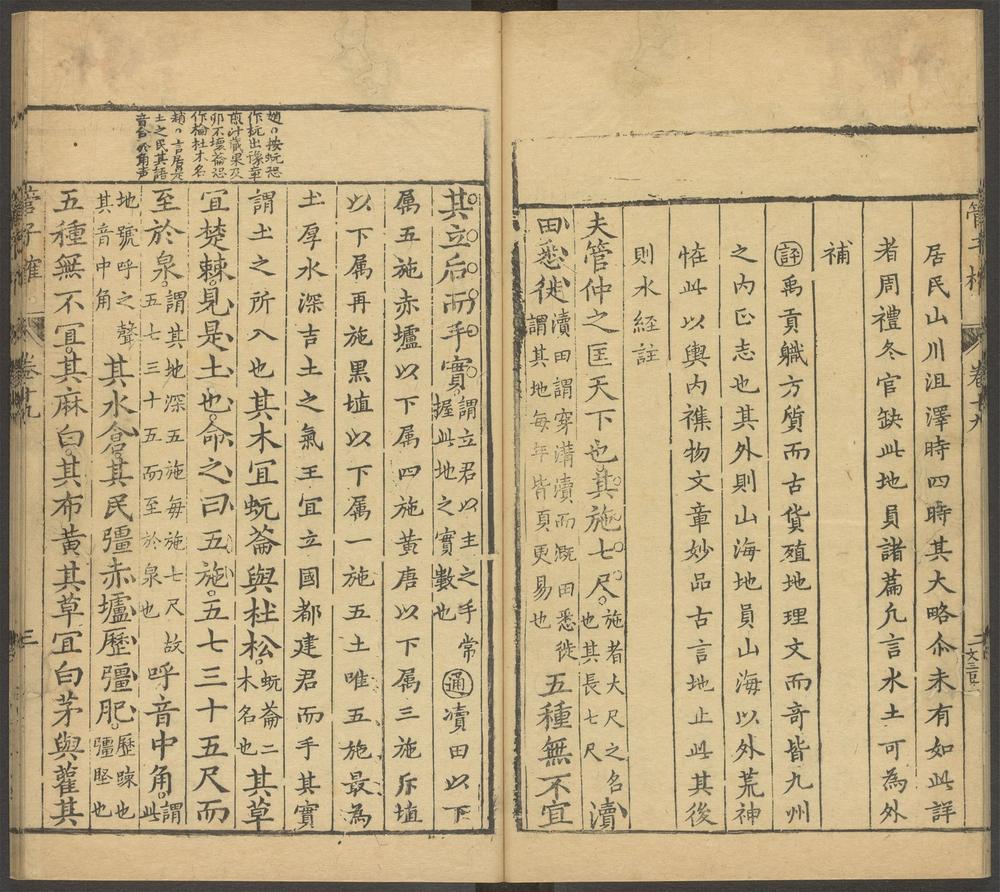 居民山川沮澤時四時其大略尒未有如此詳
者周禮冬官缺此地員諸篇凢言水土可為外
補
評禹貢職方質而古貨殖地理文而竒皆九州
之内正志也其外則山海地員山海以外荒神
恠此以輿内襍物文章妙品古言地止此其後
則水經註
夫管仲之匡天下也其施七尺施者大尺之名也其長七尺瀆
田悉徙瀆田謂穿溝瀆而溉田悉徙謂其地每年皆湏更易也五種無不宜
其立后而手實謂立君以主之手常握此地之實數也通瀆田以下
属五施赤壚以下属四施黄唐以下属三施斥埴
以下属再施黒埴以下属一施五土唯五施最為
土厚水深吉土之氣王宜立國都建君而手其實
謂土之所入也其木宜蚖菕與杜松蚖菕二木名也其草
宜楚棘見是土也命之曰五施五七三十五尺而
至於泉謂其地深五施每施七尺故五七三十五而至於泉也呼音中角謂此
地號呼之聲其音中角其水倉其民彊赤壚歷彊肥歷疎也彊堅也
五種無不宜其麻白其布黄其草宜白茅與雚其
趙曰按蚖恐
作杬出豫章
煎汁藏果及
卵不壞菕恐
作棆杜木名
趙曰言居是
土之民其語
音合於角聲
管子榷
卷十九
三